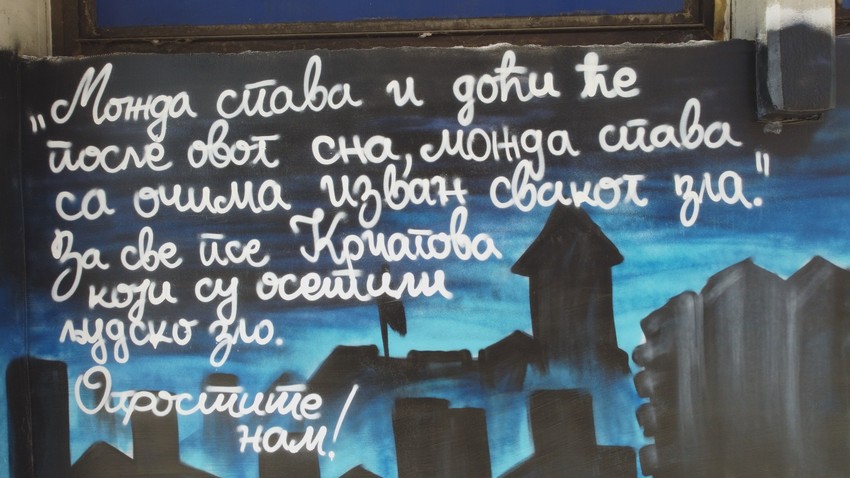 „Можда спава и доћи ће
после овог сна, можда спава
са очима изван сваког зла."
За све псе Крчагова
који су осетили
људско зло.
Опростите
нам!